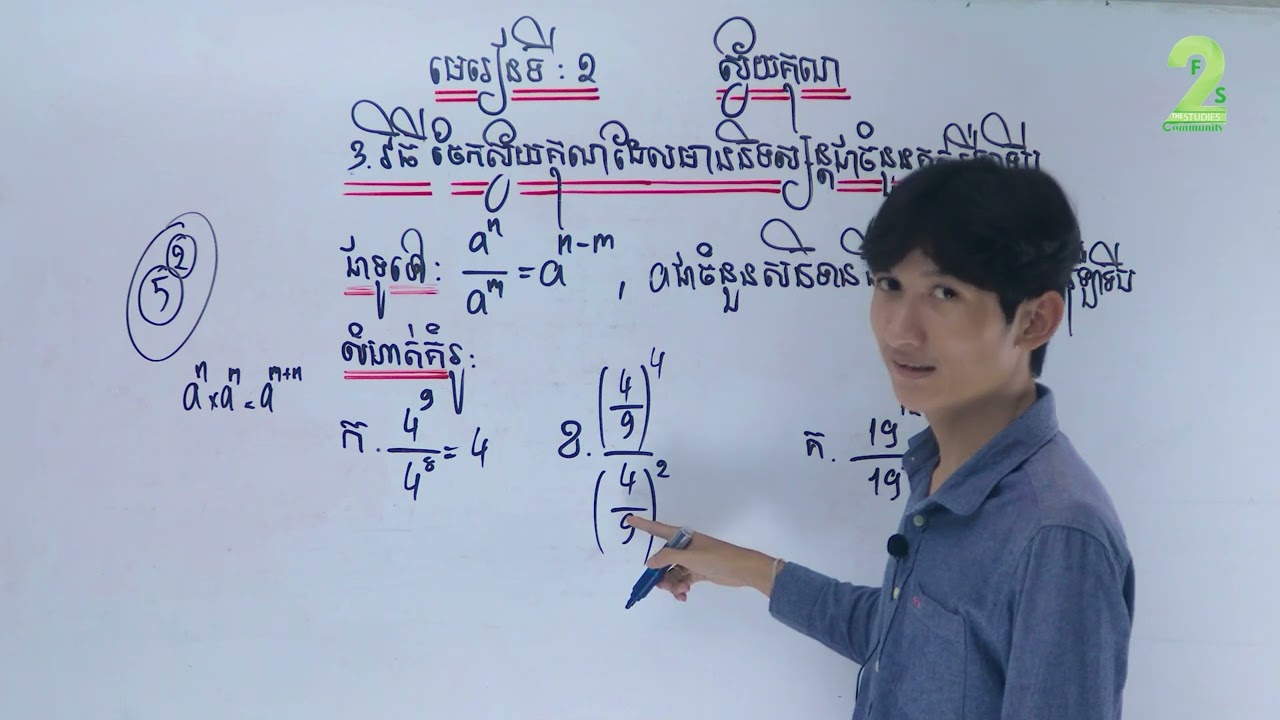 មេរៀនទី : ១ ស្វ័យគុណ
3. វិធី ចែកស្វ័យគុណដែលមាននិទស្សន្តជាចំនួនគត់
ជាទូទៅ : a^n / a^m = a^{n-m} , a ជាចំនួនសនិទាន
លំហាត់គំរូ :
ក. 4^9 / 4^8 = 4
ខ. (4/9)^4 / (4/9)^2
គ. 19 / 19
5
a^n × a^m = a^{m+n}
2
F
S
THE STUDIES
Community